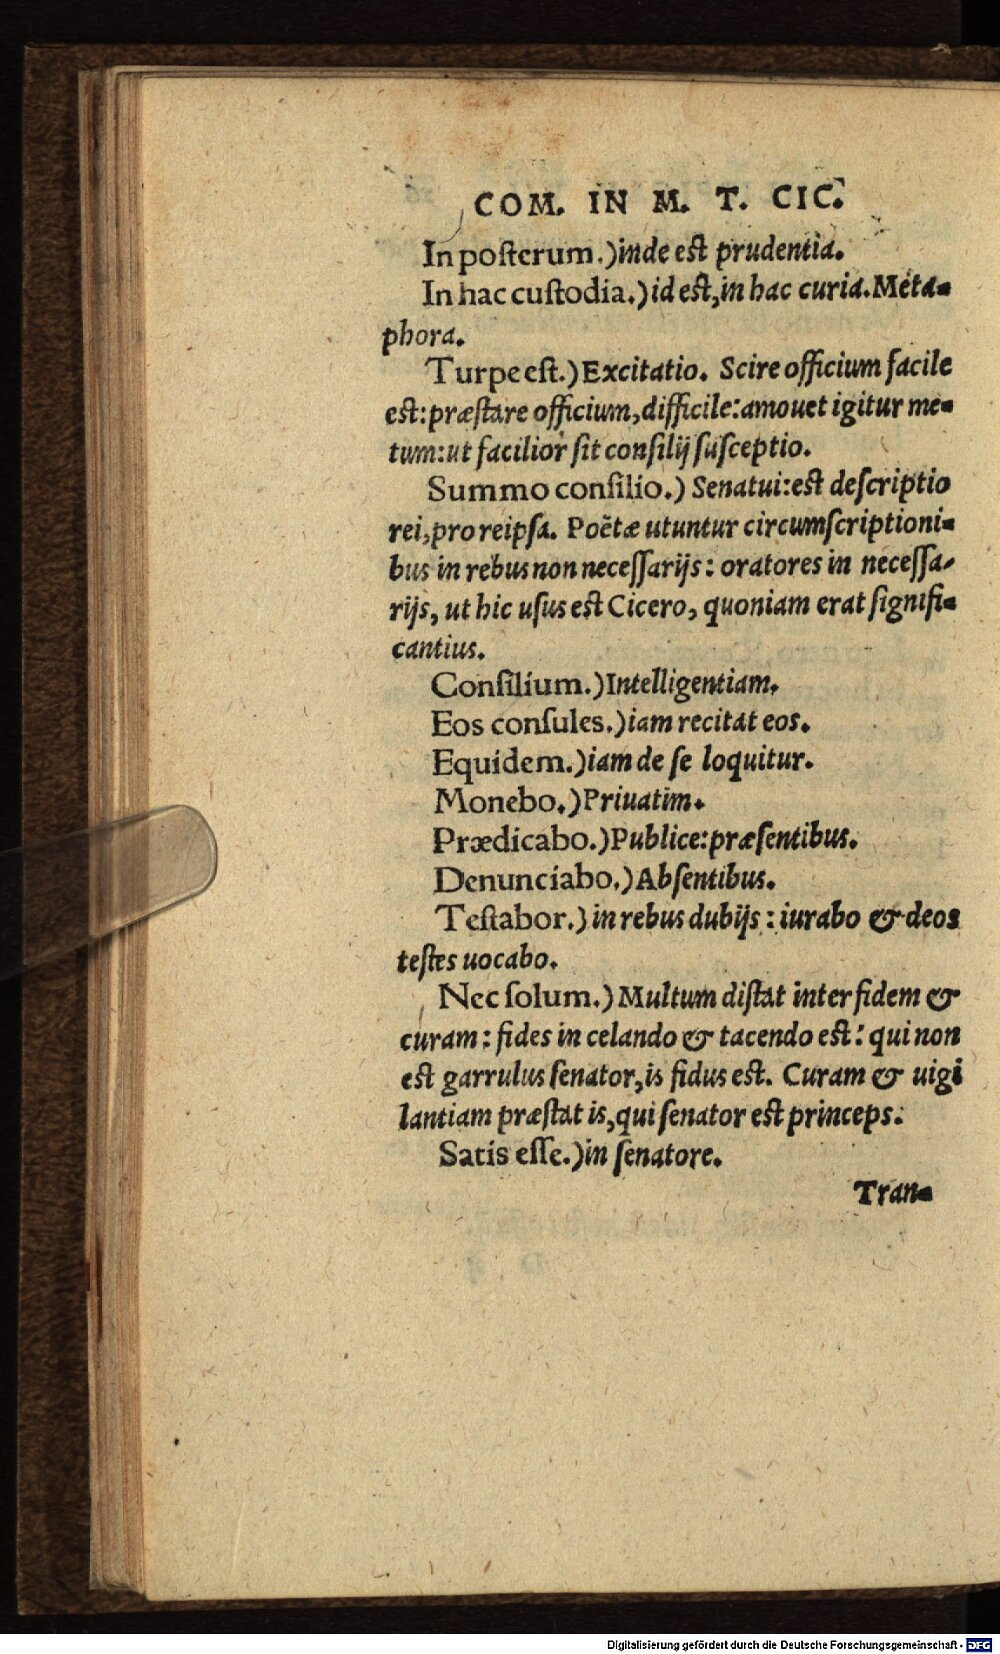 COM. IN M. T. CIC.
In posterum.) inde est prudentia.
In hac custodia.) id est, in hac curia. Meta-
phora.
Turpe est.) Excitatio. Scire officium facile
est: præstare officium, difficile: amouet igitur me-
tum: ut facilior sit consilij susceptio.
Summo consilio.) Senatui: est descriptio
rei, pro reipsa. Poëtæ utuntur circumscriptioni-
bus in rebus non necessarijs: oratores in necessa-
rijs, ut hic usus est Cicero, quoniam erat signifi-
cantius.
Consilium.) Intelligentiam.
Eos consules.) iam recitat eos.
Equidem.) iam de se loquitur.
Monebo.) Priuatim.
Prædicabo.) Publice: præsentibus.
Denunciabo.) Absentibus.
Testabor.) in rebus dubijs: iurabo & deos
testes uocabo.
Nec solum.) Multum distat inter fidem &
curam: fides in celando & tacendo est: qui non
est garrulus senator, is fidus est. Curam & uigi
lantiam præstat is, qui senator est princeps.
Satis esse.) in senatore.
Tran-
Digitalisierung gefördert durch die Deutsche Forschungsgemeinschaft - DFG